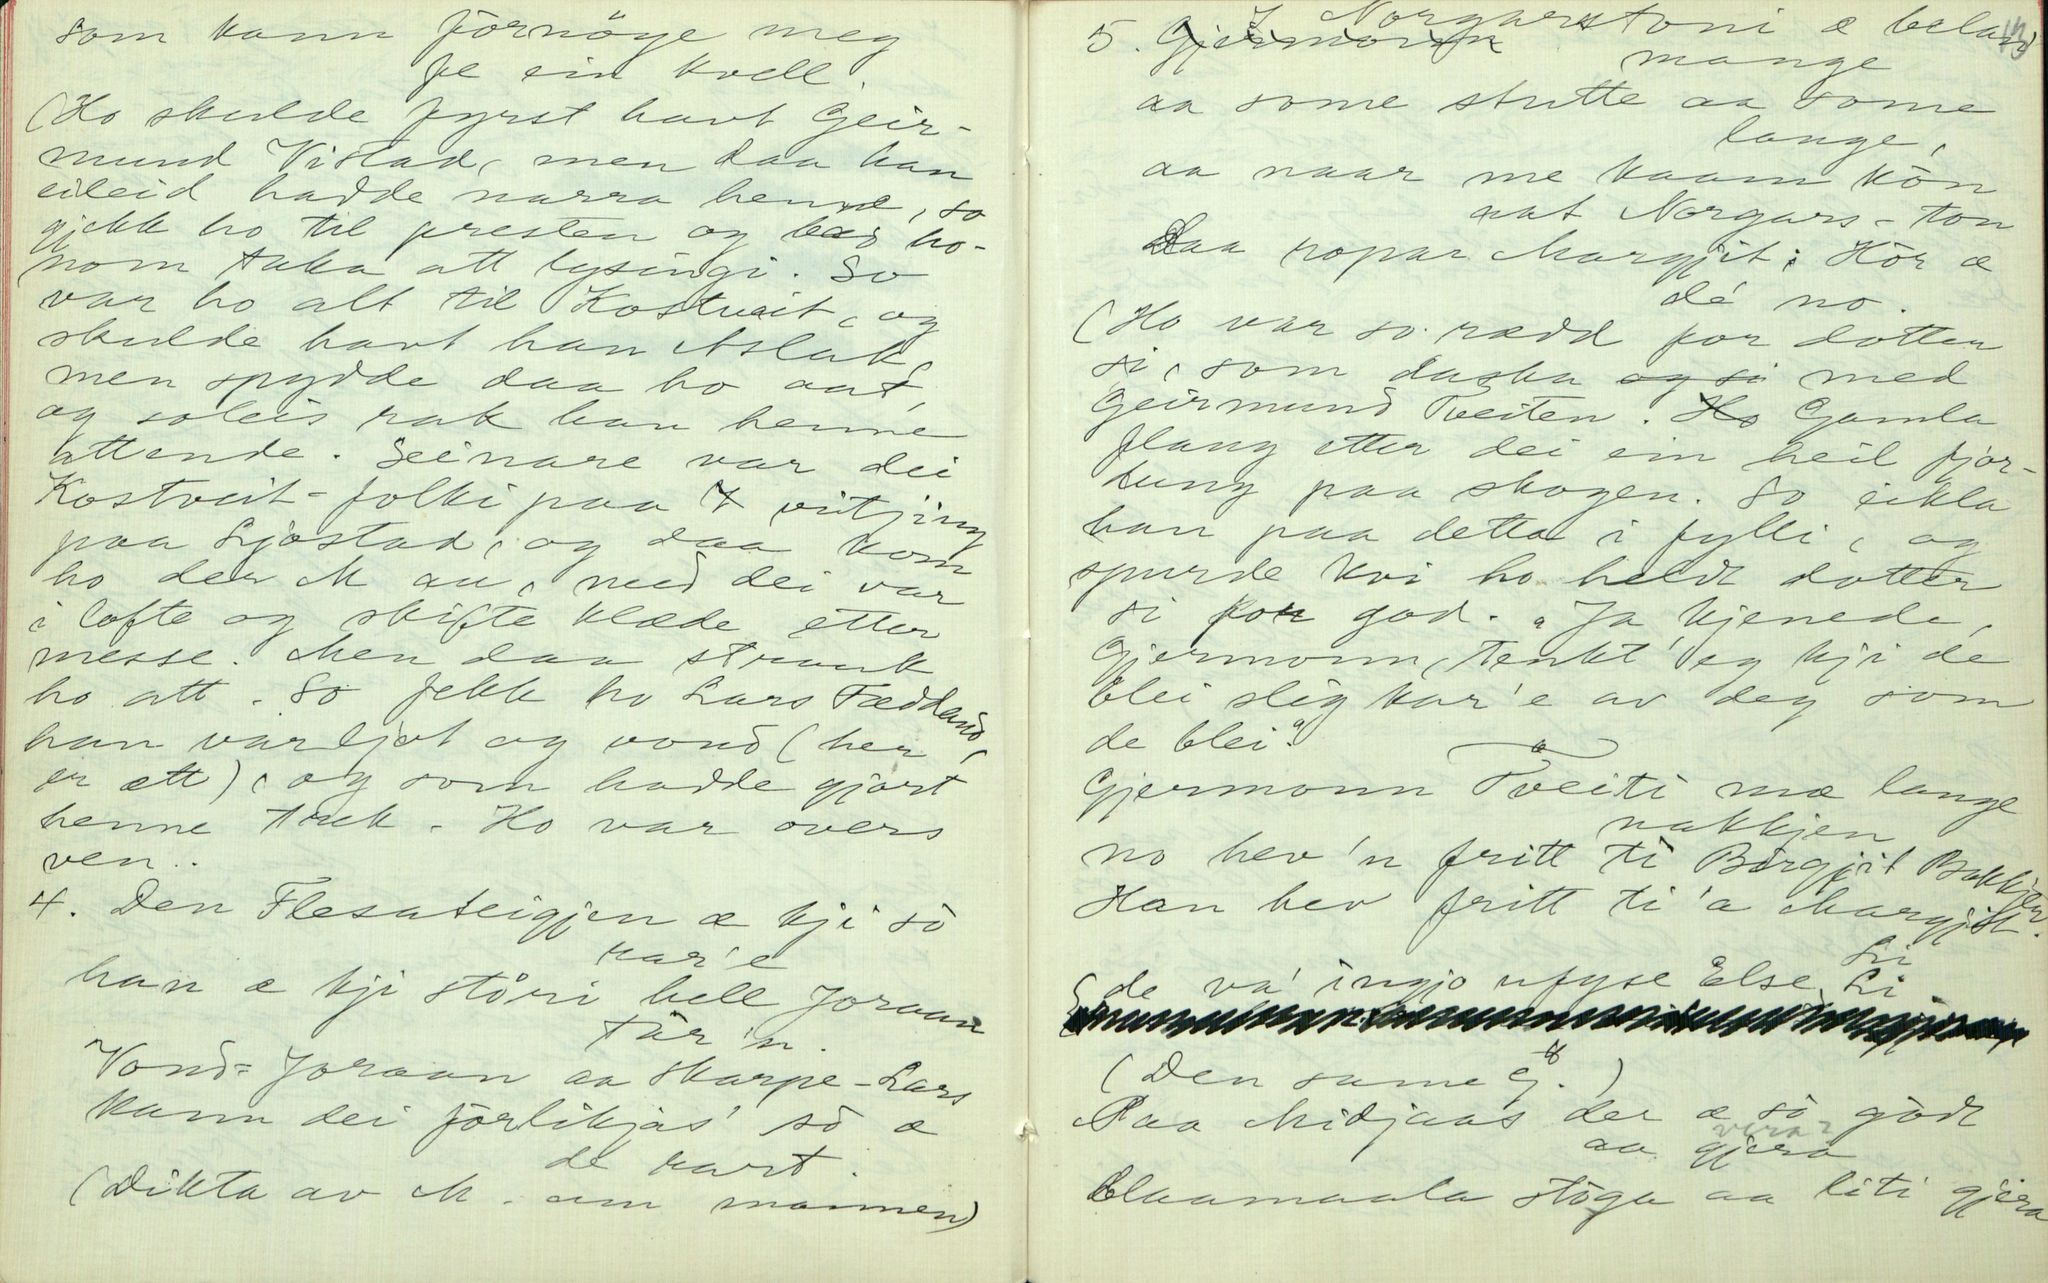 som kann förnöye meg
fe ein kvell.
(Ho skulde fyrst havt Geir-
mund Vistad, men daa han
eileid hadde narra henne, so
gjekk ho til presten og bad ho-
nom taka att lysingi. So
var ho alt til Kostveit, og
skulde havt han Aslak,
men spydde daa ho aat,
og soleis rak han henne
attende. Seinare var dei
Kostveit-folki paa vitjing
paa Ljostad, og daa kom
ho der M au, med dei var
i lofte og skifte klæde etter
messe. Men daa strauk
ho att. So fekk ho Lars Fæddand,
han var ljot og vond (her
er ætt), og som hadde gjort
henne truk. Ho var overs
ven.
4. Den Flesateigjen æ kji sò
rar'e
han æ kji stôri hell Joraan
tur'n.
Vond-Joraan aa skarpe-Lars
kann dei förlikjas' sò æ
de rart.
(Dikta av M. um mannen)
5. I Norgarstoni æ belar
mange
aa some stutte aa some
lange,
aa naar me kaam kön
aat Norgars-ton
Daa ropar Margjit: Hör æ
dé no.
(Ho var so rædd for dotter
si, som daska og si med
Geirmund Tveiten. Ho Gamla
flaug etter dei ein heil fjor-
dung paa skogen. So eikla
han paa detta i fylli, og
spurde kvi ho heldt dotter
si for god. "Ja kjenede,
Gjermonn, tenkt' eg kji de
blei slig kar'e av deg som
de blei."
Gjermonn Tveiti mæ lange
nakkjen
no hev'n fritt ti Börgjit Bakkjen.
Han hev fritt ti'a Margjit
Li
de va' ingjo ufyse Else Li.
(Den same G.)
Paa Midjaas der æ sò gödt
aa gjera
vera
Blaamaala stôga aa liti gjera